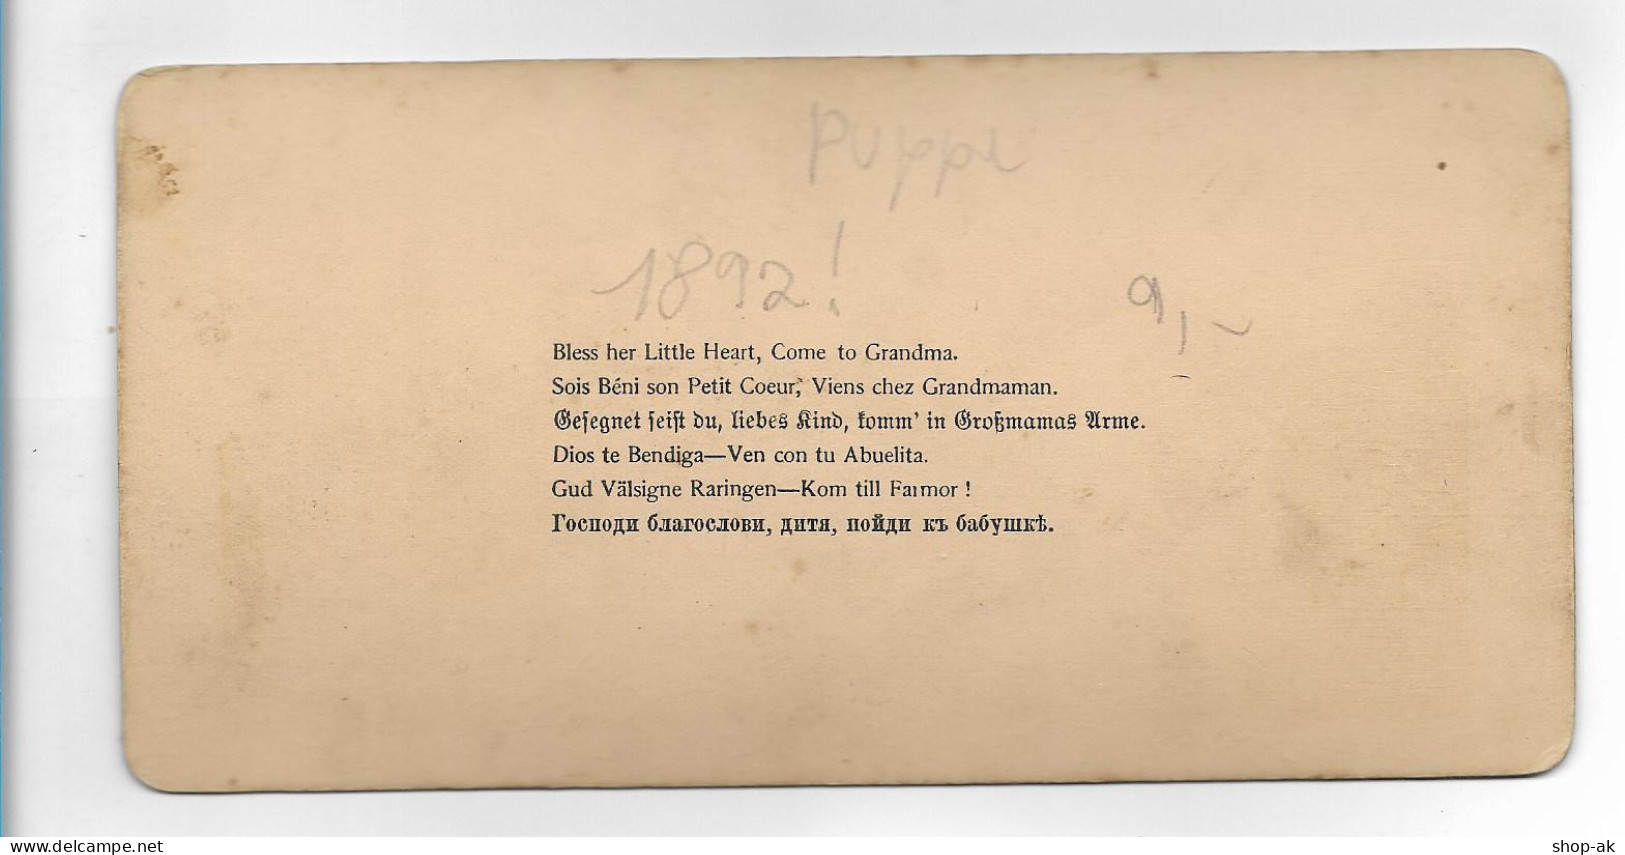 Puppe
1892!
9,-
Bless her Little Heart, Come to Grandma.
Sois Béni son Petit Coeur, Viens chez Grandmaman.
Gesegnet seist du, liebes Kind, komm' in Großmamas Arme.
Dios te Bendiga—Ven con tu Abuelita.
Gud Välsigne Raringen—Kom till Farmor!
Господи благослови, дитя, пойди къ бабушкѣ.
www.delcampe.net
shop-ak